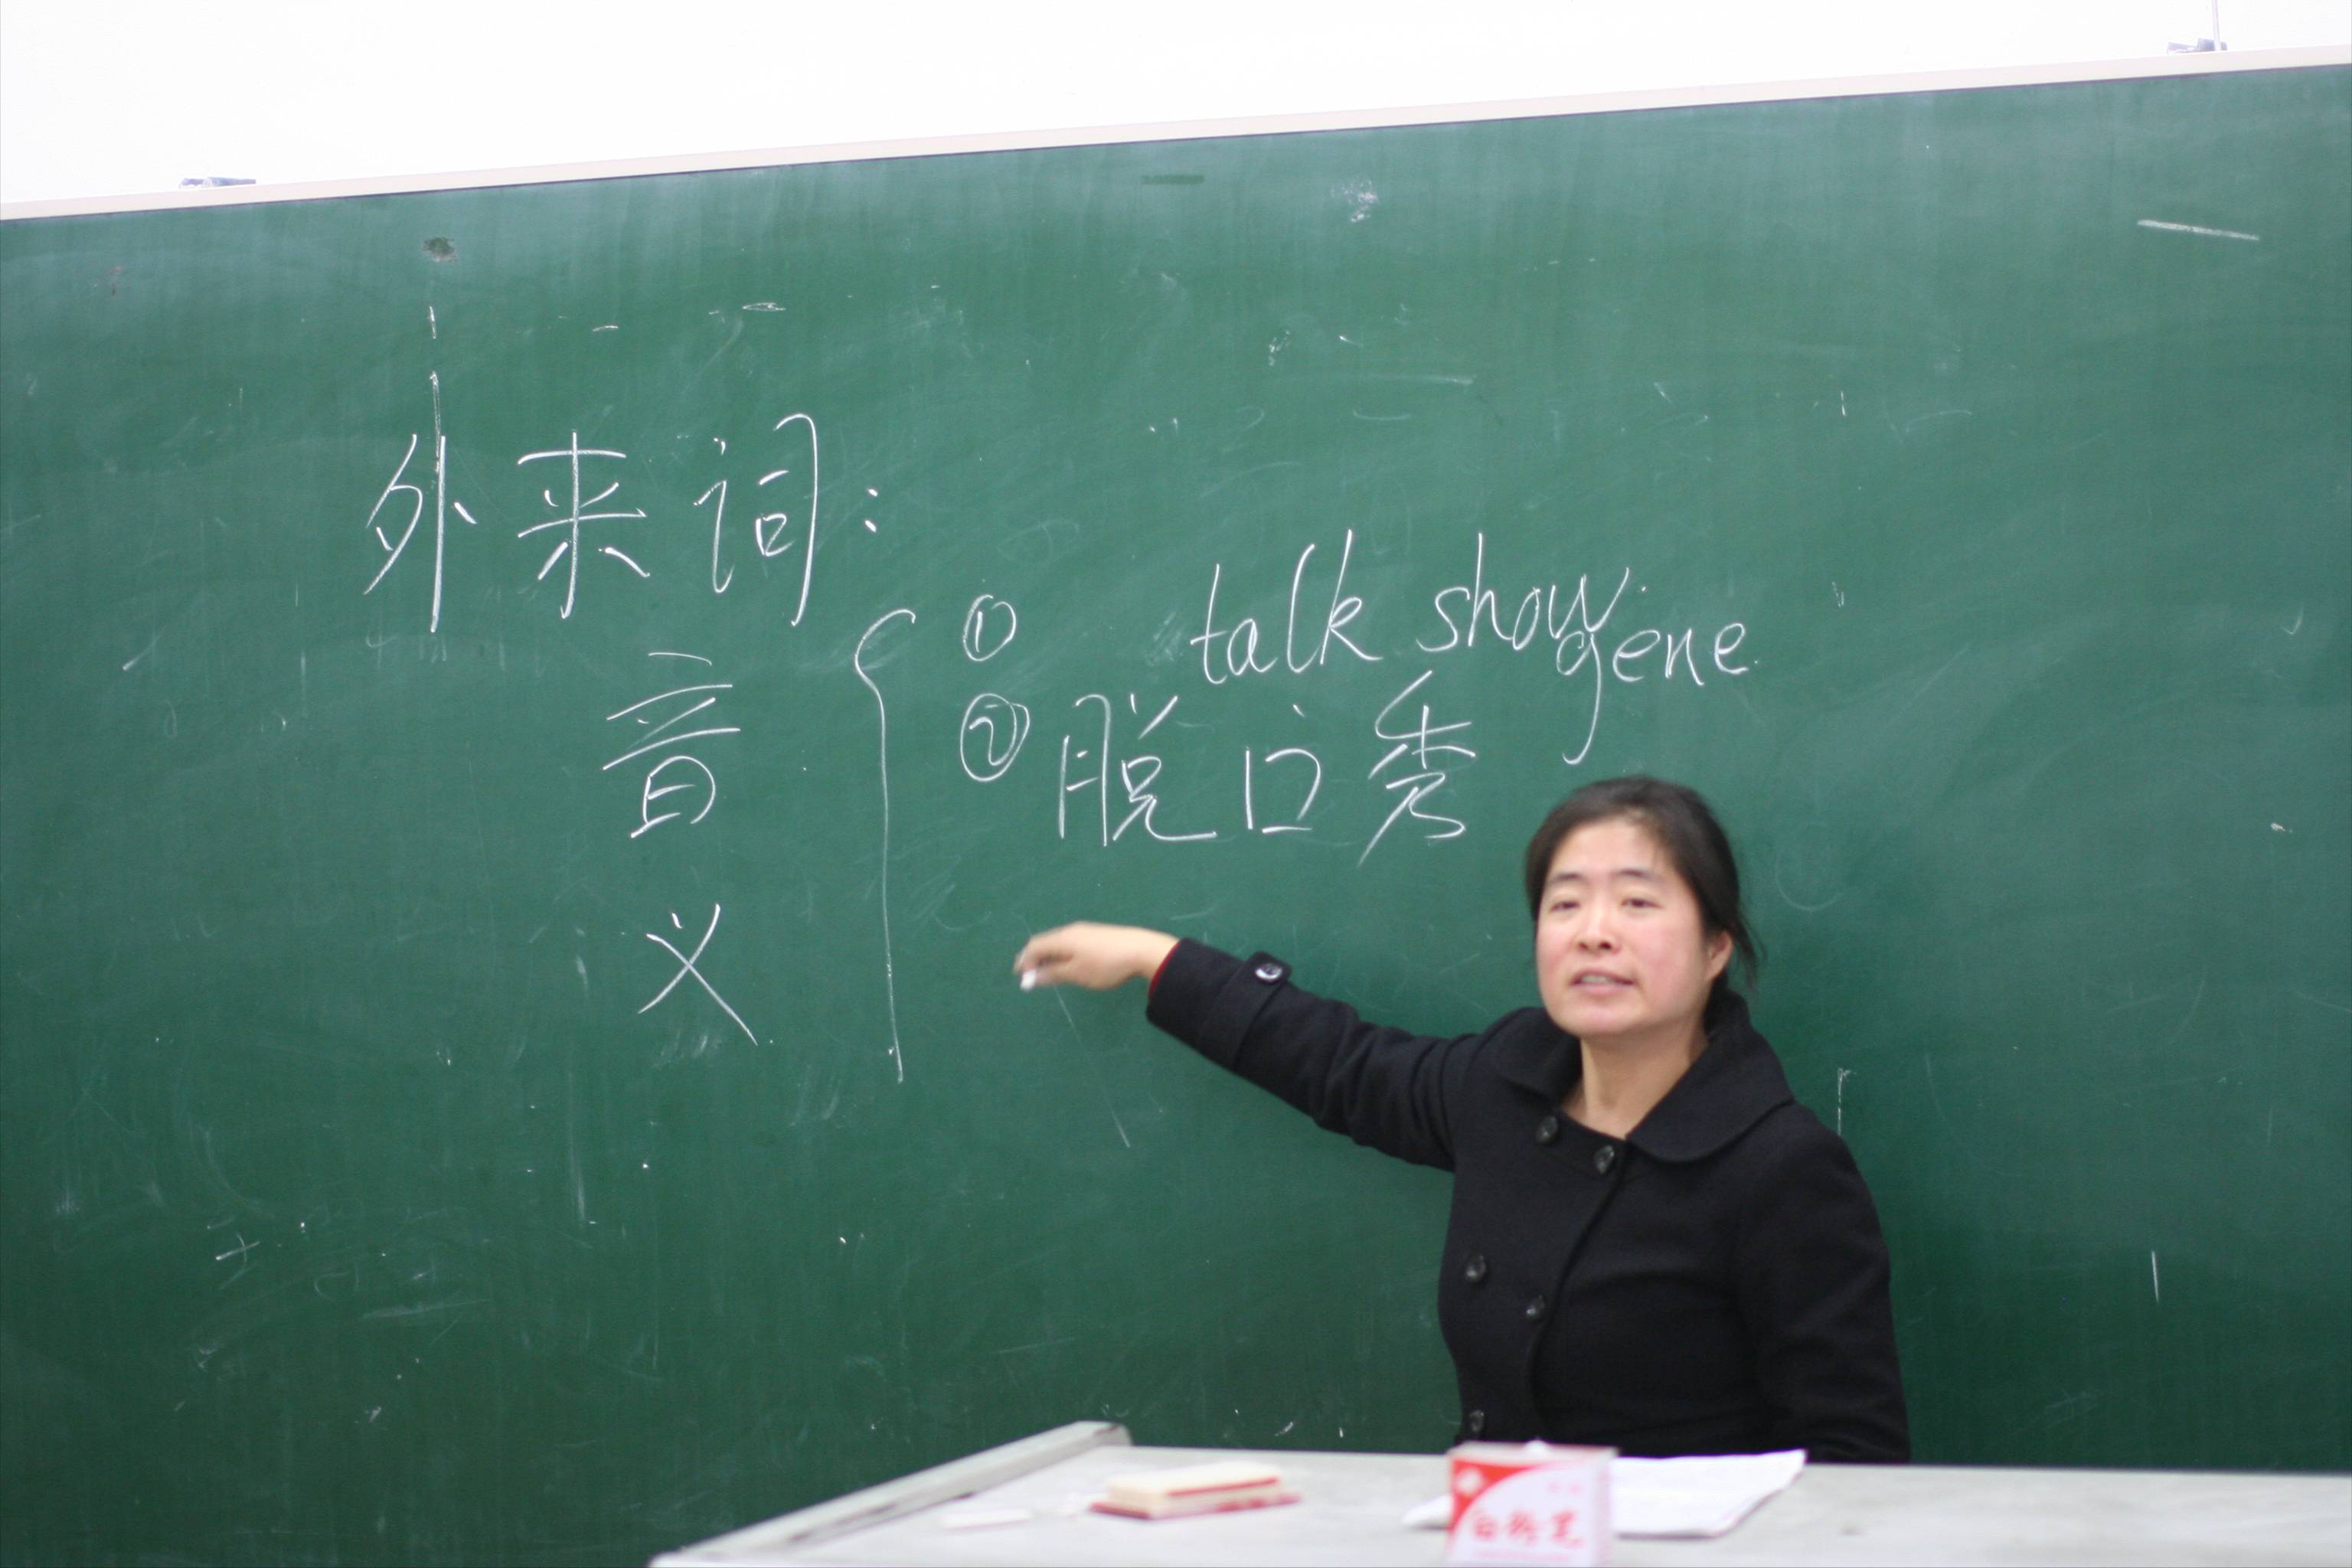 外来词:
① talk show. gene
音 ② 脱口秀
义
白粉笔